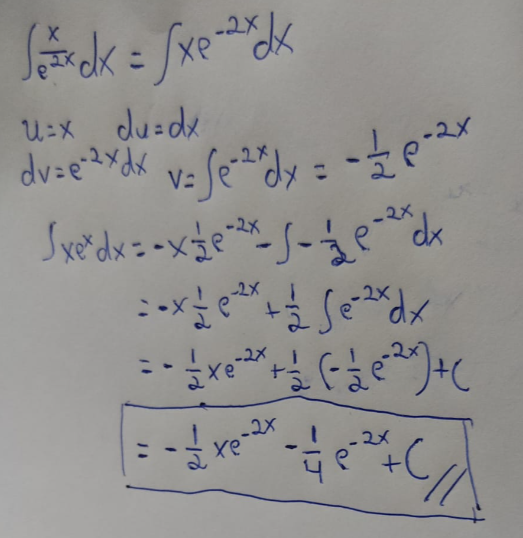 ∫ x/e^2x dx = ∫ xe^-2x dx
u=x du=dx
dv=e^-2x dx v=∫e^-2x dx = -1/2 e^-2x
∫xe^x dx = -x 1/2 e^-2x - ∫ -1/2 e^-2x dx
= -x 1/2 e^-2x + 1/2 ∫e^-2x dx
= -1/2 xe^-2x + 1/2 (-1/2 e^-2x) + C
= -1/2 xe^-2x - 1/4 e^-2x + C //